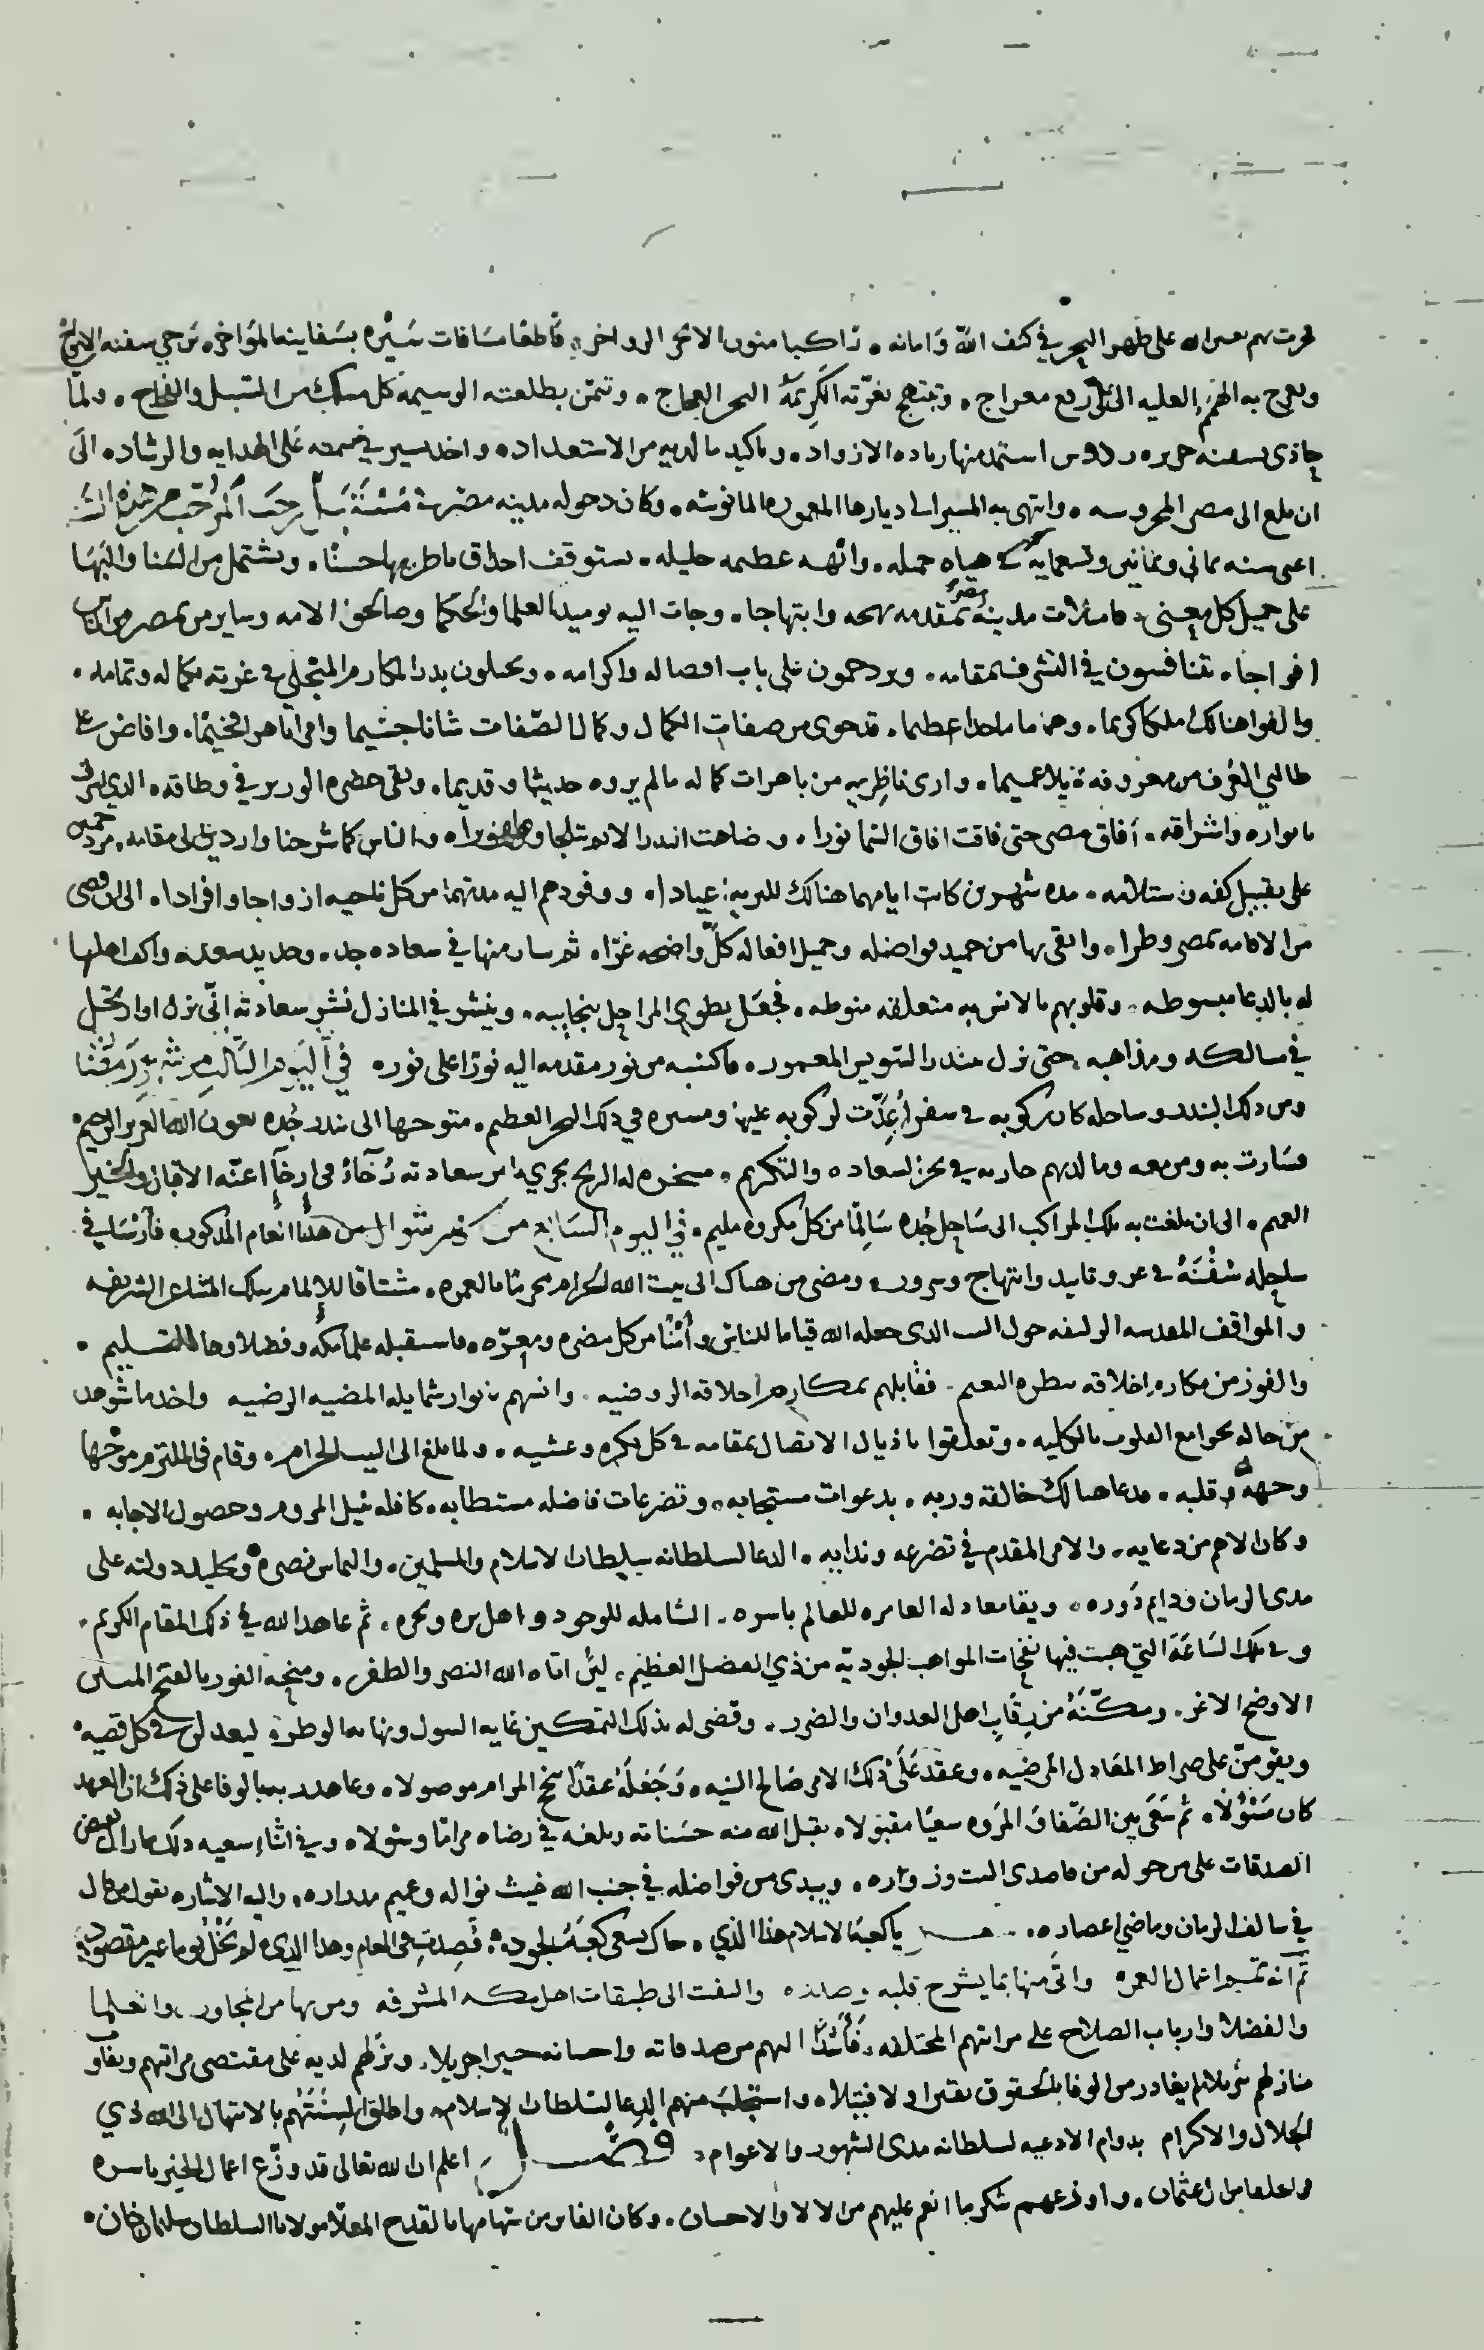 فجرت بهم بعين الله على ظهر البحر في كنف الله وامانه . راكبا متون الابحر الزواخر . قاطعا مسافات سيره بسفاينه المواخر . تزجي سفنه الارياح
وتعرج به الهمم العليه الى كل رفيع معراج . وتبتهج بغرّته الكريمة البحر العجاج . وتتمّن بطلعته الوسيمه كل مسلك من السبل والفجاج . ولمّا
حاذى بسفنه جزيره رودس استمد منها زياده الازواد . وتاكيد ما لديه من الاستعداد . واخذ يسير في على الهدايه والرشاد . الى
ان بلغ الى مصر المحروسه . وانتهى به المسير الى ديارها المعموره المانوسه . وكان دخوله مدينه مصر في رجب المرجب من هذه السنة
اعنى سنه ثماني وثمانين وتسعمايه في هياه جميله . وابّهه عظيمه جليله . تستوقف احداق ناظريها حسنًا . ويشتمل من السنا والبها
على جميل كل معنى . فامتلات مدينة مصر بمقدمه بهجه وابتهاجا . وجات اليه يوميذ العلما والحكما وصالحوا الامه وساير من بمصر من الناس
افواجا . يتنافسون في التشرف بمقامه . ويزدحمون على باب افضاله واكرامه . ويجتلون بدر المكارم المتجلي في غرته بكماله وتمامه .
والفوا هنالك ملكا كريما . وهماما ماجدا عظيما . قد حوى من صفات الكمال وكمال الصّفات شانا جسيما وافراما هو الخيمًا . وافاض على
طالبي العُرف من معروفه نيلا عميما . وارى ناظريه من باهرات كماله ما لم يروه حديثا وقديما . وبقى حضره الوزير في وطاقه . الذي اشرق
بانواره واشراقه . افاق مصر حتى فاقت افاق السما نورا . وضاحت البدر الانور والناس كما شرحنا واردين الى مقامه . مزدحمين
على تقبيل كفه واستلامه . مده شهرين كانت ايامهما هنالك للبريه اعيادا . ووفودهم اليه مدتهما من كل ناحيه ازواجا وافرادا . الى ان قضى
من الاقامه بمصر وطرا . وابقى بها من حميد فواضله وجميل افعاله كلّ واضحه غرّا . ثم سار منها في سعاده جده . وجديد سعده واكف اهلها
له بالدعا مبسوطه . وقلوبهم بالانس به متعلقه منوطه . فجعل يطوي المراحل بنجايبه . وينشر في المنازل نشر سعادته انّى نزل او ارتحل
في مسالكه ومذاهبه . حتى نزل ببندر السويس المعمور . فاكتسبه من نور مقدمه اليه نورا على نوره في اليوم الثالث من شهر رمضان
ومن ذلك البندر وساحله كان ركوبه في سفن اُعِدّت لركوبه عليها ومسيره في ذلك البحر العظيم . متوجها الى بندر جُده بعون الله العزيز الرحيم
فسارت به ومن معه وما لديهم جاريه في بحر السعاده والتكريم . مسخره له الريح تجري بامر سعادته رُخآءً في ارخآء اعنّه الاقبال والخير
العميم . الى ان بلغت به تلك المراكب الى ساحل جُده سالمًا من كل مكروه مليم . في اليوم السابع من شهر شوال من هذا العام المذكور . فارسا في
ساحله سُفُنَهُ في عز وتاييد وابتهاج وسرور . ومضى من هناك الى بيت الله الحرام محرمًا بالعمره . مشتاقا للالمام بتلك المشاعر الشريفه
والمواقف المقدسه المنيفه حول البيت الذى جعله الله قياما للناس وامْنًا من كل مضره ومعرّه . فاستقبله علما مكه وفضلاوها للتسليم .
والفوز من مكارم اخلاقه بنظره النعيم . فقابلهم بمكارم اخلاقه الروضيه . وانسهم بانوار شمايله المضيه الرضيه واخذ ما شوهد
من حاله بجوامع القلوب بالكليه . وتعلقوا باذيال الاتصال بمقامه في كل بكره وعشيه . ولما بلغ الى البيت الحرام . وقام فى الملتزم موجها
وجهه وقلبه . ودعا هنالك خالقه وربه . بدعوات مستجابه . وتضرعات فاضله مستطابه . كافله بنيل المروم وحصول الاجابه .
وكان الاهم من دعايه . والامر المقدم في تضرعه وندايه . الدعا لسلطانه سلطان الاسلام والمسلمين . والتماس نصره وتخليد دولته على
مدى الزمان ودايم دَوره . وبقا معادله العامره للعالم باسره . الشامله للوجود واهل بره وبحره . ثم عاهد الله في ذلك المقام الكريم .
وفي تلك السّاعة التي هبت فيها نفحات المواهب الجوديّه من ذي الفضل العظيم . لين اتاه الله النصر والظفر . ومنحه الفوز بالفتح المبين
الاوضح الاغر . ومكّنَهُ من رِقَابِ اهل العدوان والضرر . وقضى له بذلك التمكين غايه السول ونهايه الوطر . ليعدلن في كل قضيه
ويقومنّ على صراط المعادل المرضيه . وعقد على ذلك الامر صالح النيه . وجعله عقدًا بنجح المرام موصولا . وعاهد ربه بالوفا على ذلك ان العهد
كان مَسْؤُلًا . ثم سعى بين الصّفا والمروه سعيًا مقبولا . تقبل الله منه حسناته وبلغه في رضاه مرامًا وسُولا . وفي اثناء سعيه ذلك ما زال يفيض
الصدقات على من حوله من قاصدى البيت وزواره . ويبدى من فواضله في جنب الله غيث نواله وعميم مدراره . واليه الاشاره بقول من قال
في سالف الزمان وماضي اعصاره . يا كعبة الاسلام هذا الذي . جاك يسعى كعبَةُ الجودِ . قُصِدتِ في العام وهذا الذى . لم يَخْلُ يوما غير مقصودِ
ثم انه تمّم اعمال العمره واتى منها بما يشرح قلبه وصدره والتفت الى طبقات اهل مكه المشرفه ومن بها من المجاورين والعلما
والفضلا وارباب الصلاح على مراتبهم المختلفه . فاَسْدَا اليهم من صدقاته واحسانه خيرا جزيلا . ونزلهم لديه على مقتضى مراتبهم وتفاوت
منازلهم تنزيلا لم يغادر من الوفا بالحقوق نقيرا ولا فتيلا . واستجلب منهم الدعا لسلطان الاسلام . واطلق السِنَتَهُم بالابتهال الى الله ذي
الجلال والاكرام بدوام الادعيه لسلطانه مدى الشهور والاعوام . فصل اعلم ان الله تعالى قد وزّع اعمال الخير باسره
وخلفا من ال عثمان . واوزعهم شكر ما انعم عليهم من الالا والاحسان . وكان الفايز من سهامها بالقدح المعلّا مولانا السلطان سليمان خان .